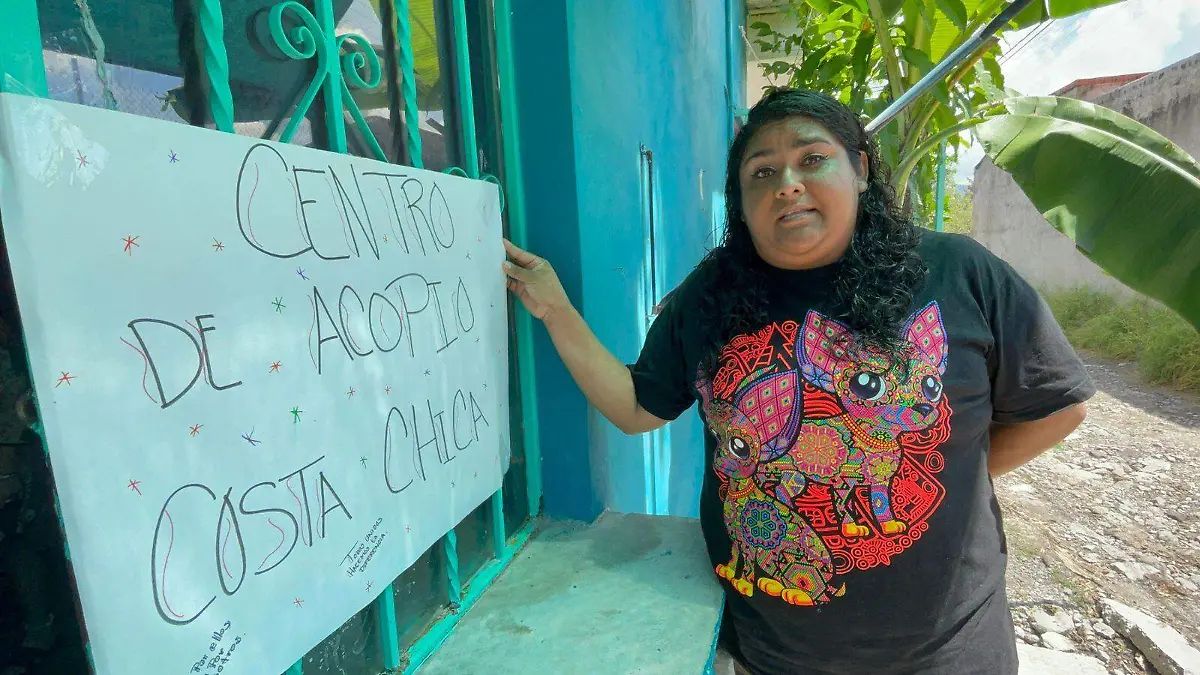 CENTRO
DE ACOPIO
COSTA CHICA
TODOS UNIDOS
HACEMOS LA
DIFERENCIA
POR ELLOS
POR